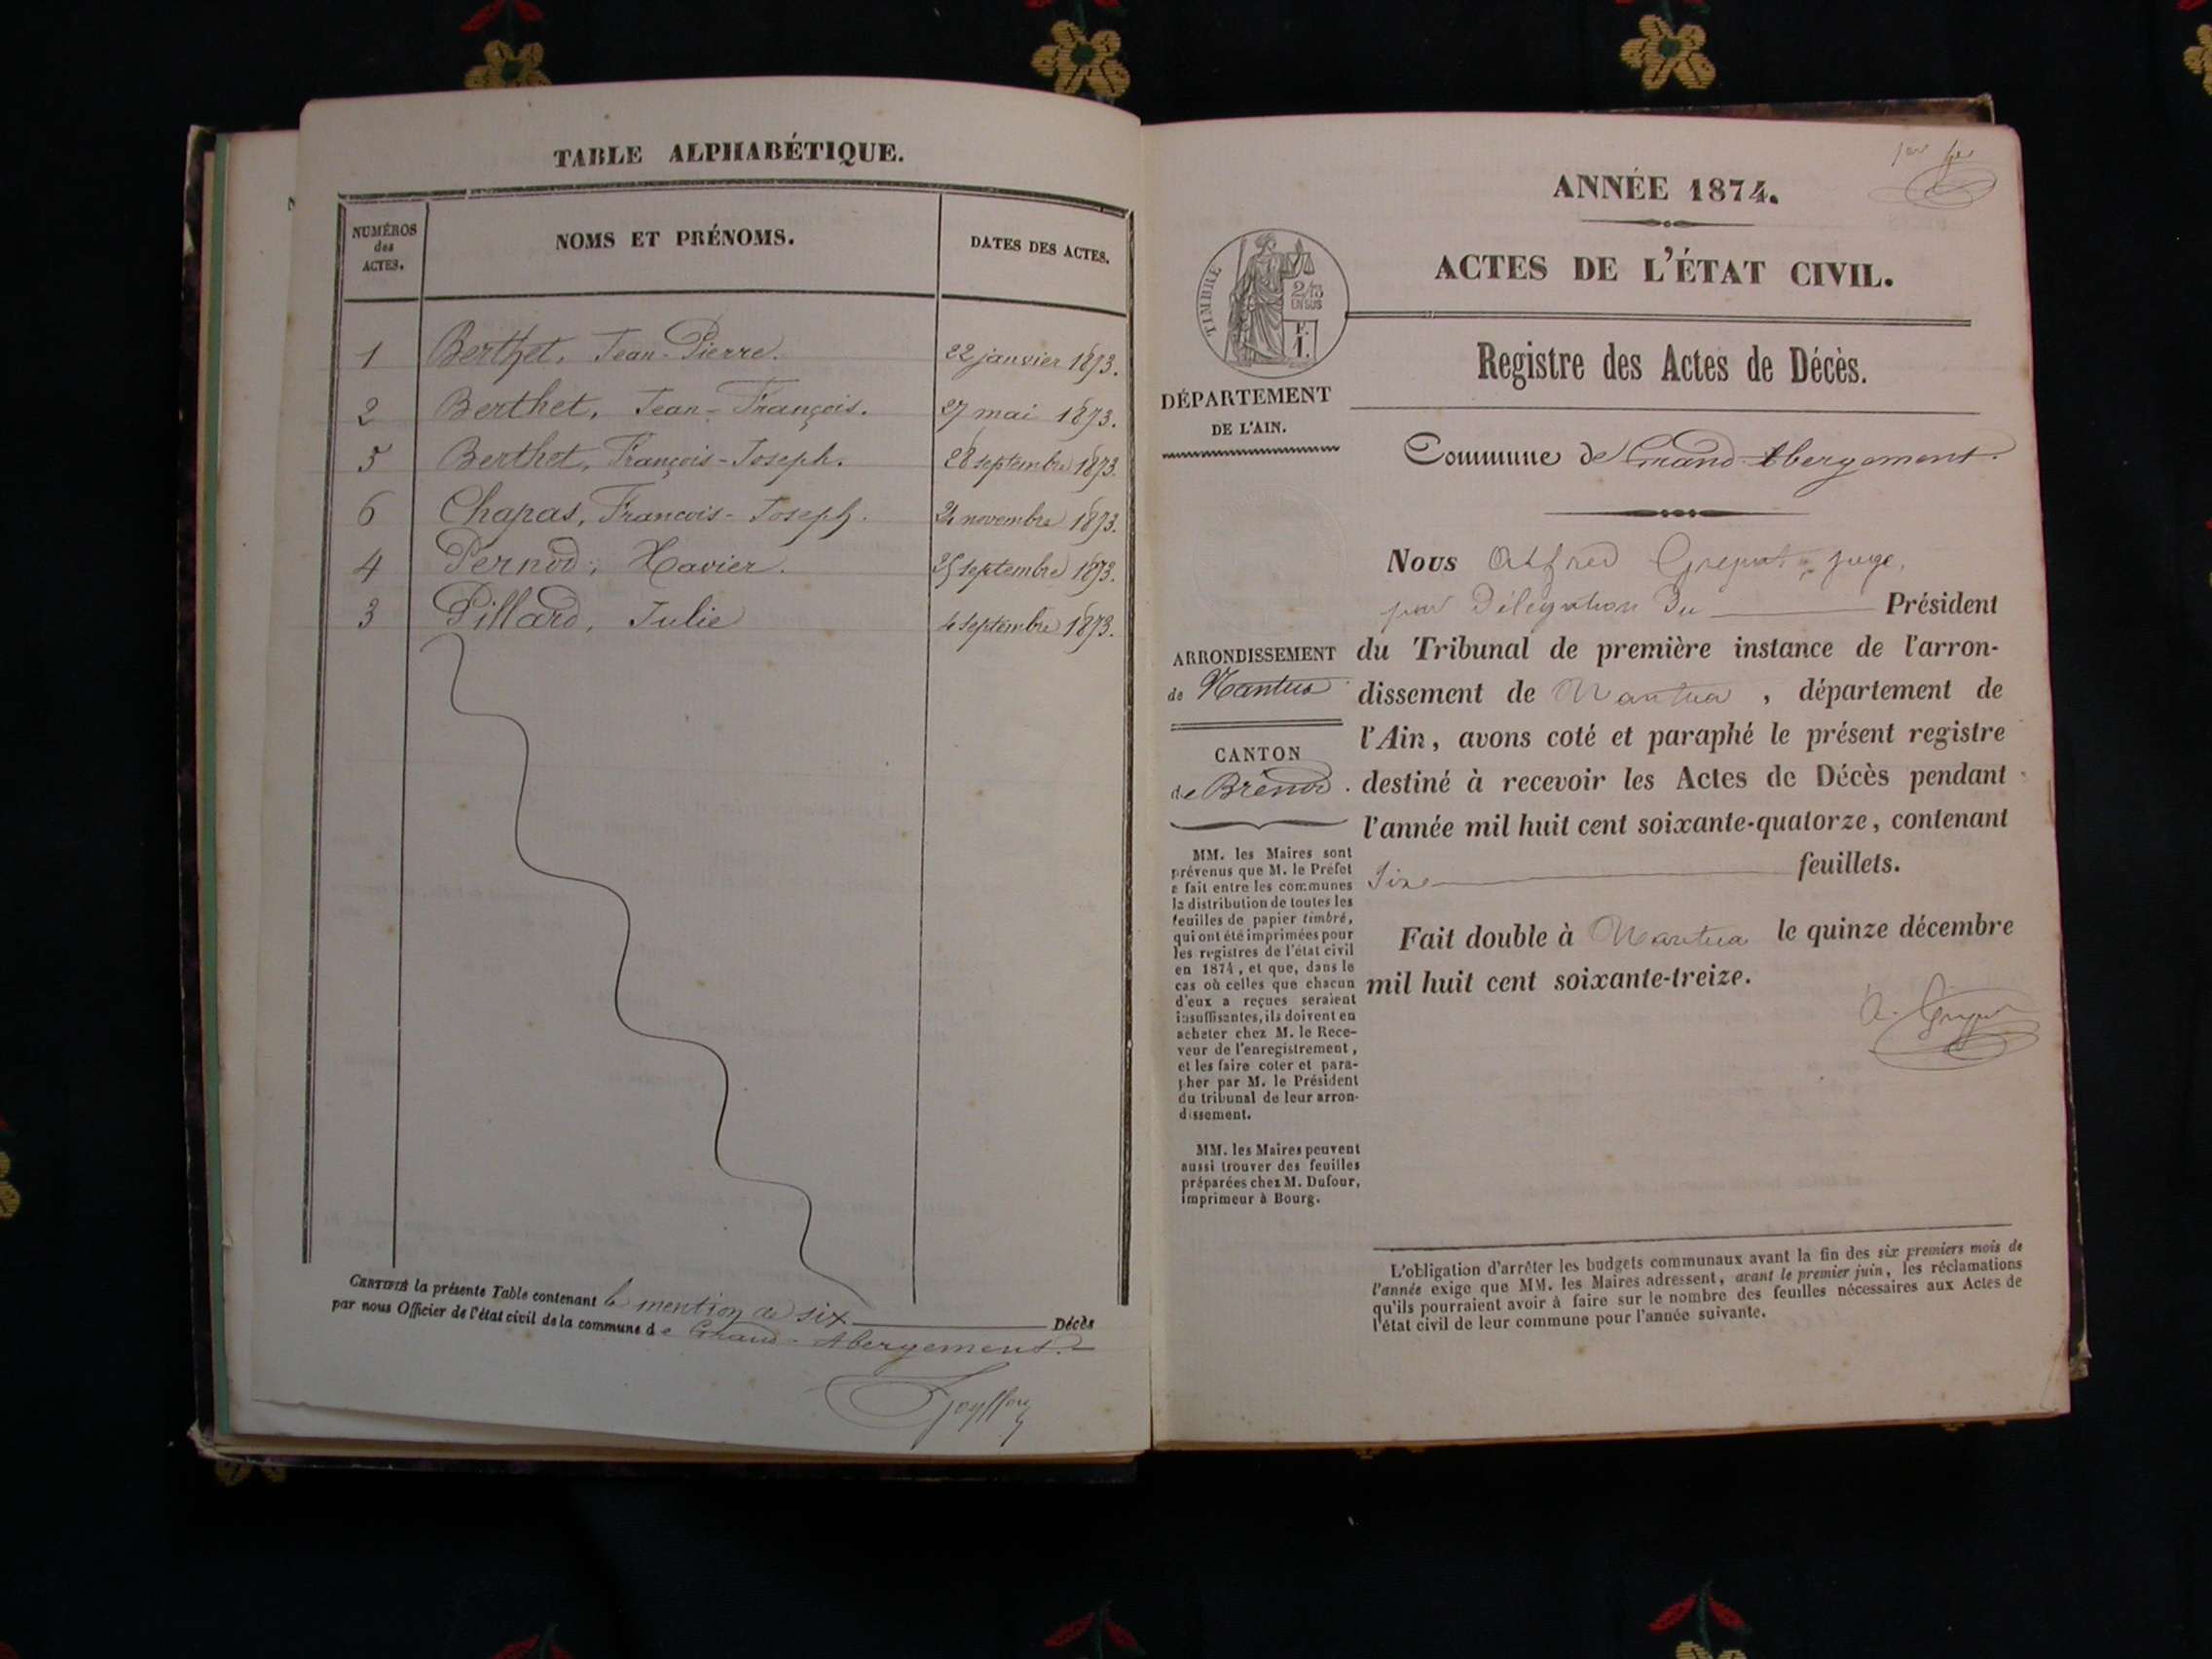 TABLE ALPHABÉTIQUE.
NUMÉROS
des
ACTES.
NOMS ET PRÉNOMS.
DATES DES ACTES.
1 Berthet, Jean-Pierre. 22 janvier 1873.
2 Berthet, Jean-François. 27 mai 1873.
5 Berthet, François-Joseph. 28 septembre 1873.
6 Chapas, Francois-Joseph. 24 novembre 1873.
4 Pernod, Xavier. 25 septembre 1873.
3 Pillard, Julie 4 septembre 1873.
CERTIFIÉ la présente Table contenant la mention de six Décès
par nous Officier de l'état civil de la commune de Grand-Abergement.
ANNÉE 1874.
ACTES DE L'ÉTAT CIVIL.
TIMBRE
2/10
EN SUS
F.
1.
Registre des Actes de Décès.
DÉPARTEMENT
DE L'AIN.
Commune de Grand-Abergement.
Nous Alfred juge,
par Délégation du Président
du Tribunal de première instance de l'arron-
dissement de Nantua, département de
l'Ain, avons coté et paraphé le présent registre
destiné à recevoir les Actes de Décès pendant
l'année mil huit cent soixante-quatorze, contenant
feuillets.
Fait double à Nantua le quinze décembre
mil huit cent soixante-treize.
ARRONDISSEMENT
de Nantua
CANTON
de Brénod.
MM. les Maires sont
prévenus que M. le Préfet
a fait entre les communes
la distribution de toutes les
feuilles de papier timbré,
qui ont été imprimées pour
les registres de l'état civil
en 1874, et que, dans le
cas où celles que chacun
d'eux a reçues seraient
insuffisantes, ils doivent en
acheter chez M. le Rece-
veur de l'enregistrement,
et les faire coter et para-
pher par M. le Président
du tribunal de leur arron-
dissement.
MM. les Maires peuvent
aussi trouver des feuilles
préparées chez M. Dufour,
imprimeur à Bourg.
L'obligation d'arrêter les budgets communaux avant la fin des six premiers mois de
l'année exige que MM. les Maires adressent, avant le premier juin, les réclamations
qu'ils pourraient avoir à faire sur le nombre des feuilles nécessaires aux Actes de
l'état civil de leur commune pour l'année suivante.